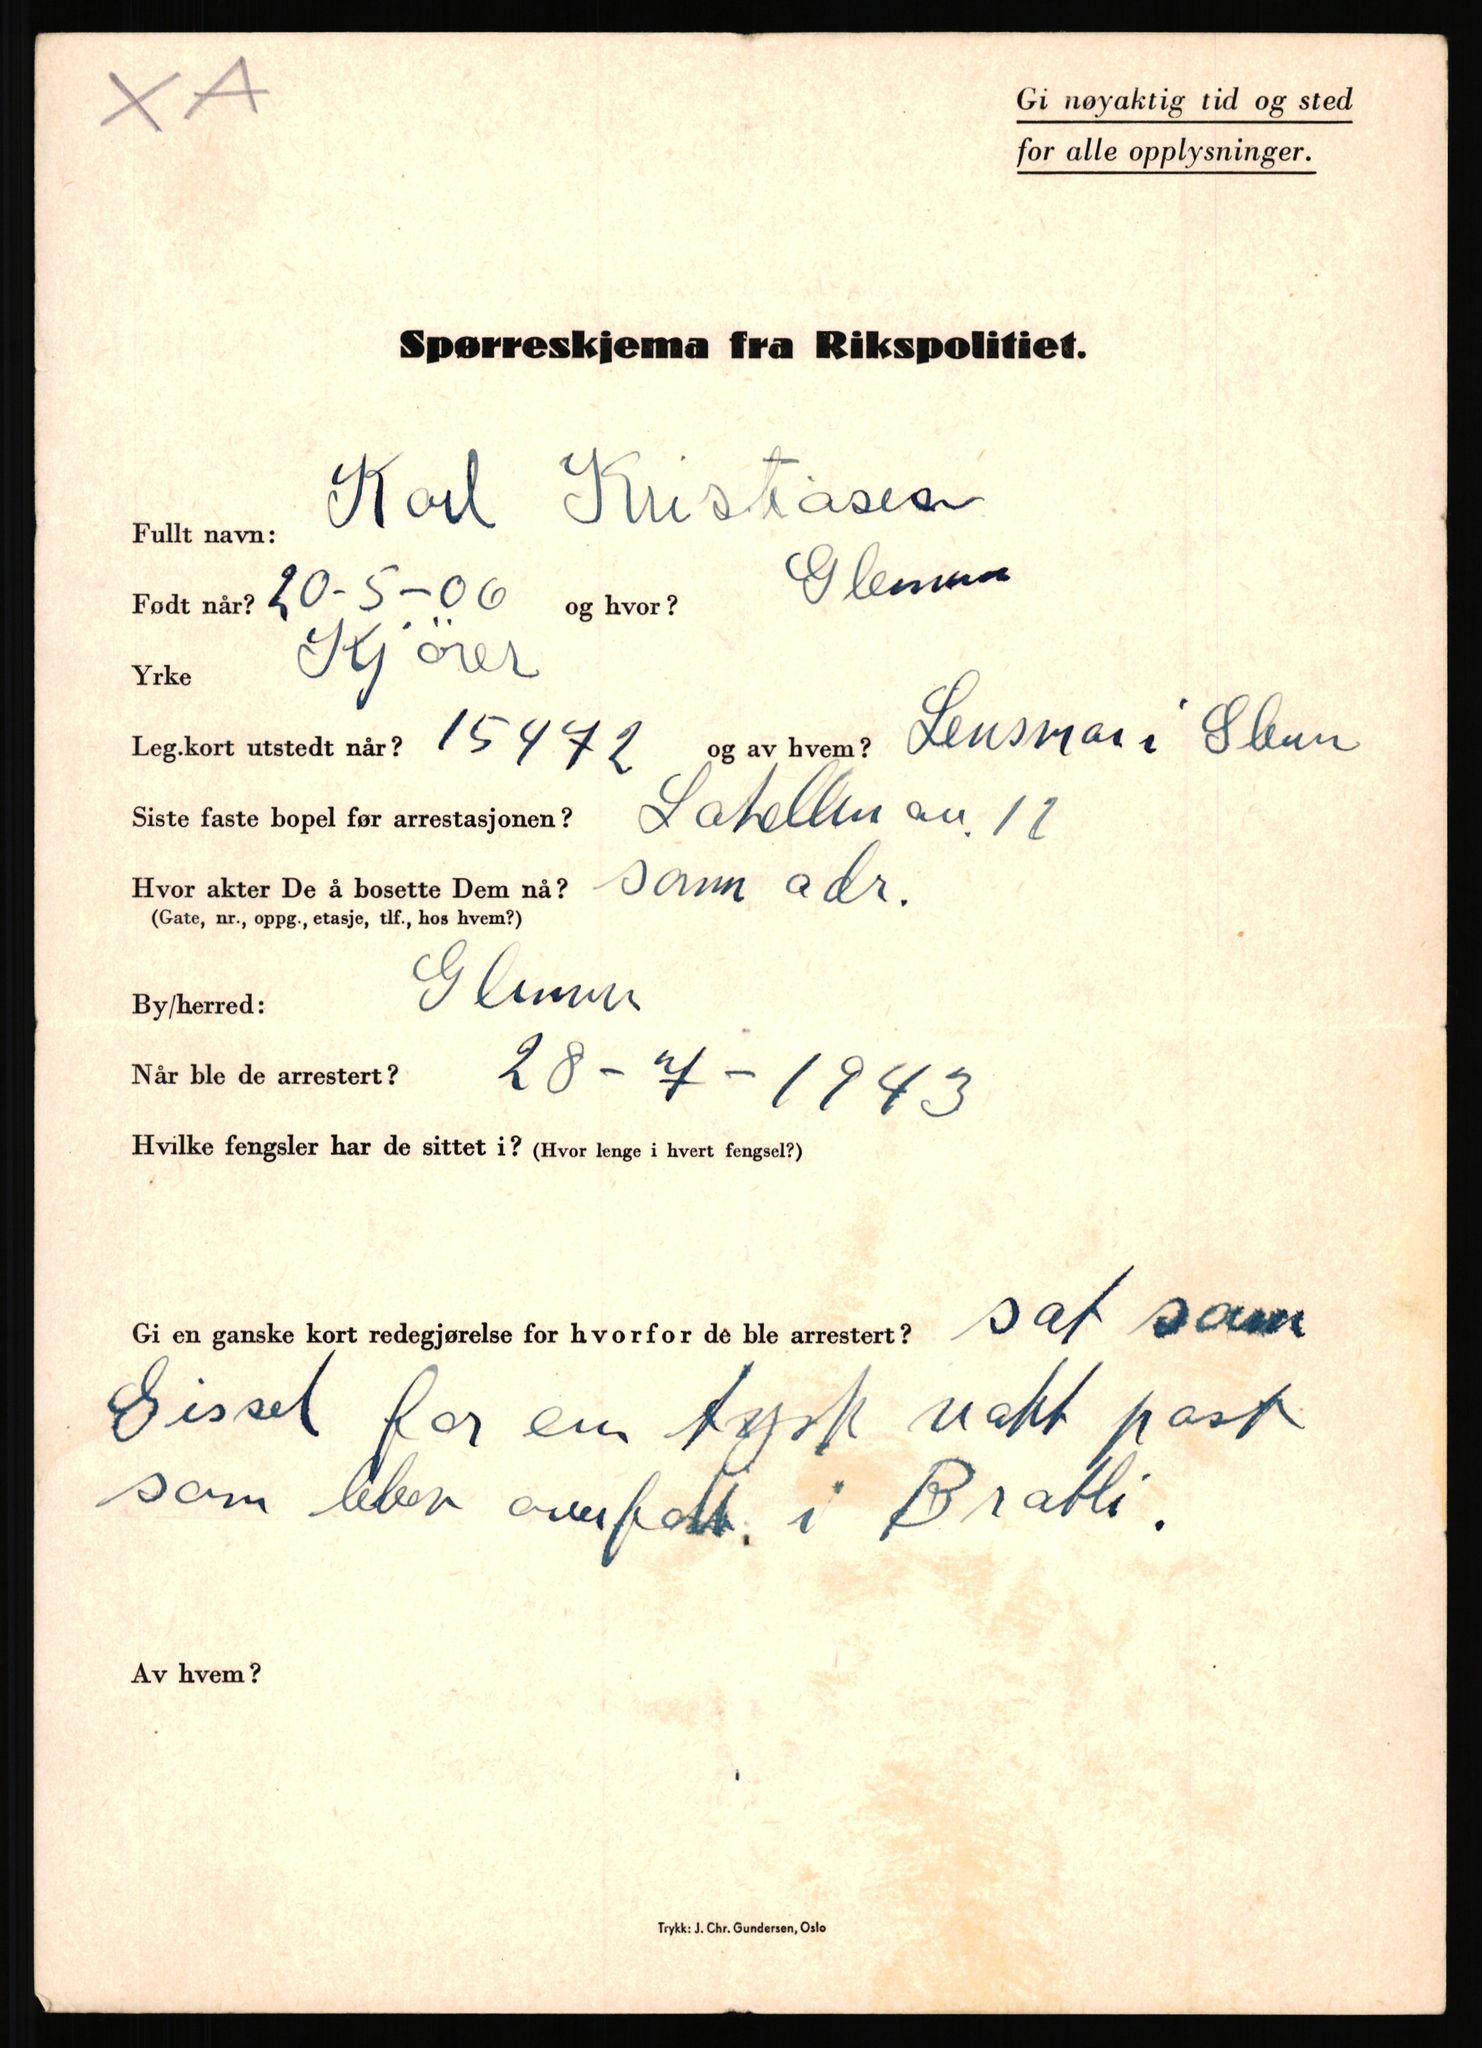 XA
Gi nøyaktig tid og sted
for alle opplysninger.
Spørreskjema fra Rikspolitiet.
Fullt navn: Karl Kristiasen
Født når? 20-5-06 og hvor? Glemmen
Yrke Kjörer
Leg.kort utstedt når? 15472 og av hvem? Lensman i Glemm
Siste faste bopel før arrestasjonen? av. 12
Hvor akter De å bosette Dem nå? samm adr.
(Gate, nr., oppg., etasje, tlf., hos hvem?)
By/herred: Glemmen
Når ble de arrestert? 28-7-1943
Hvilke fengsler har de sittet i? (Hvor lenge i hvert fengsel?)
Gi en ganske kort redegjørelse for hvorfor de ble arrestert? sat som
Gissel for en tysk vakt post
som blev overfalt i Bratli.
Av hvem?
Trykk: J. Chr. Gundersen, Oslo